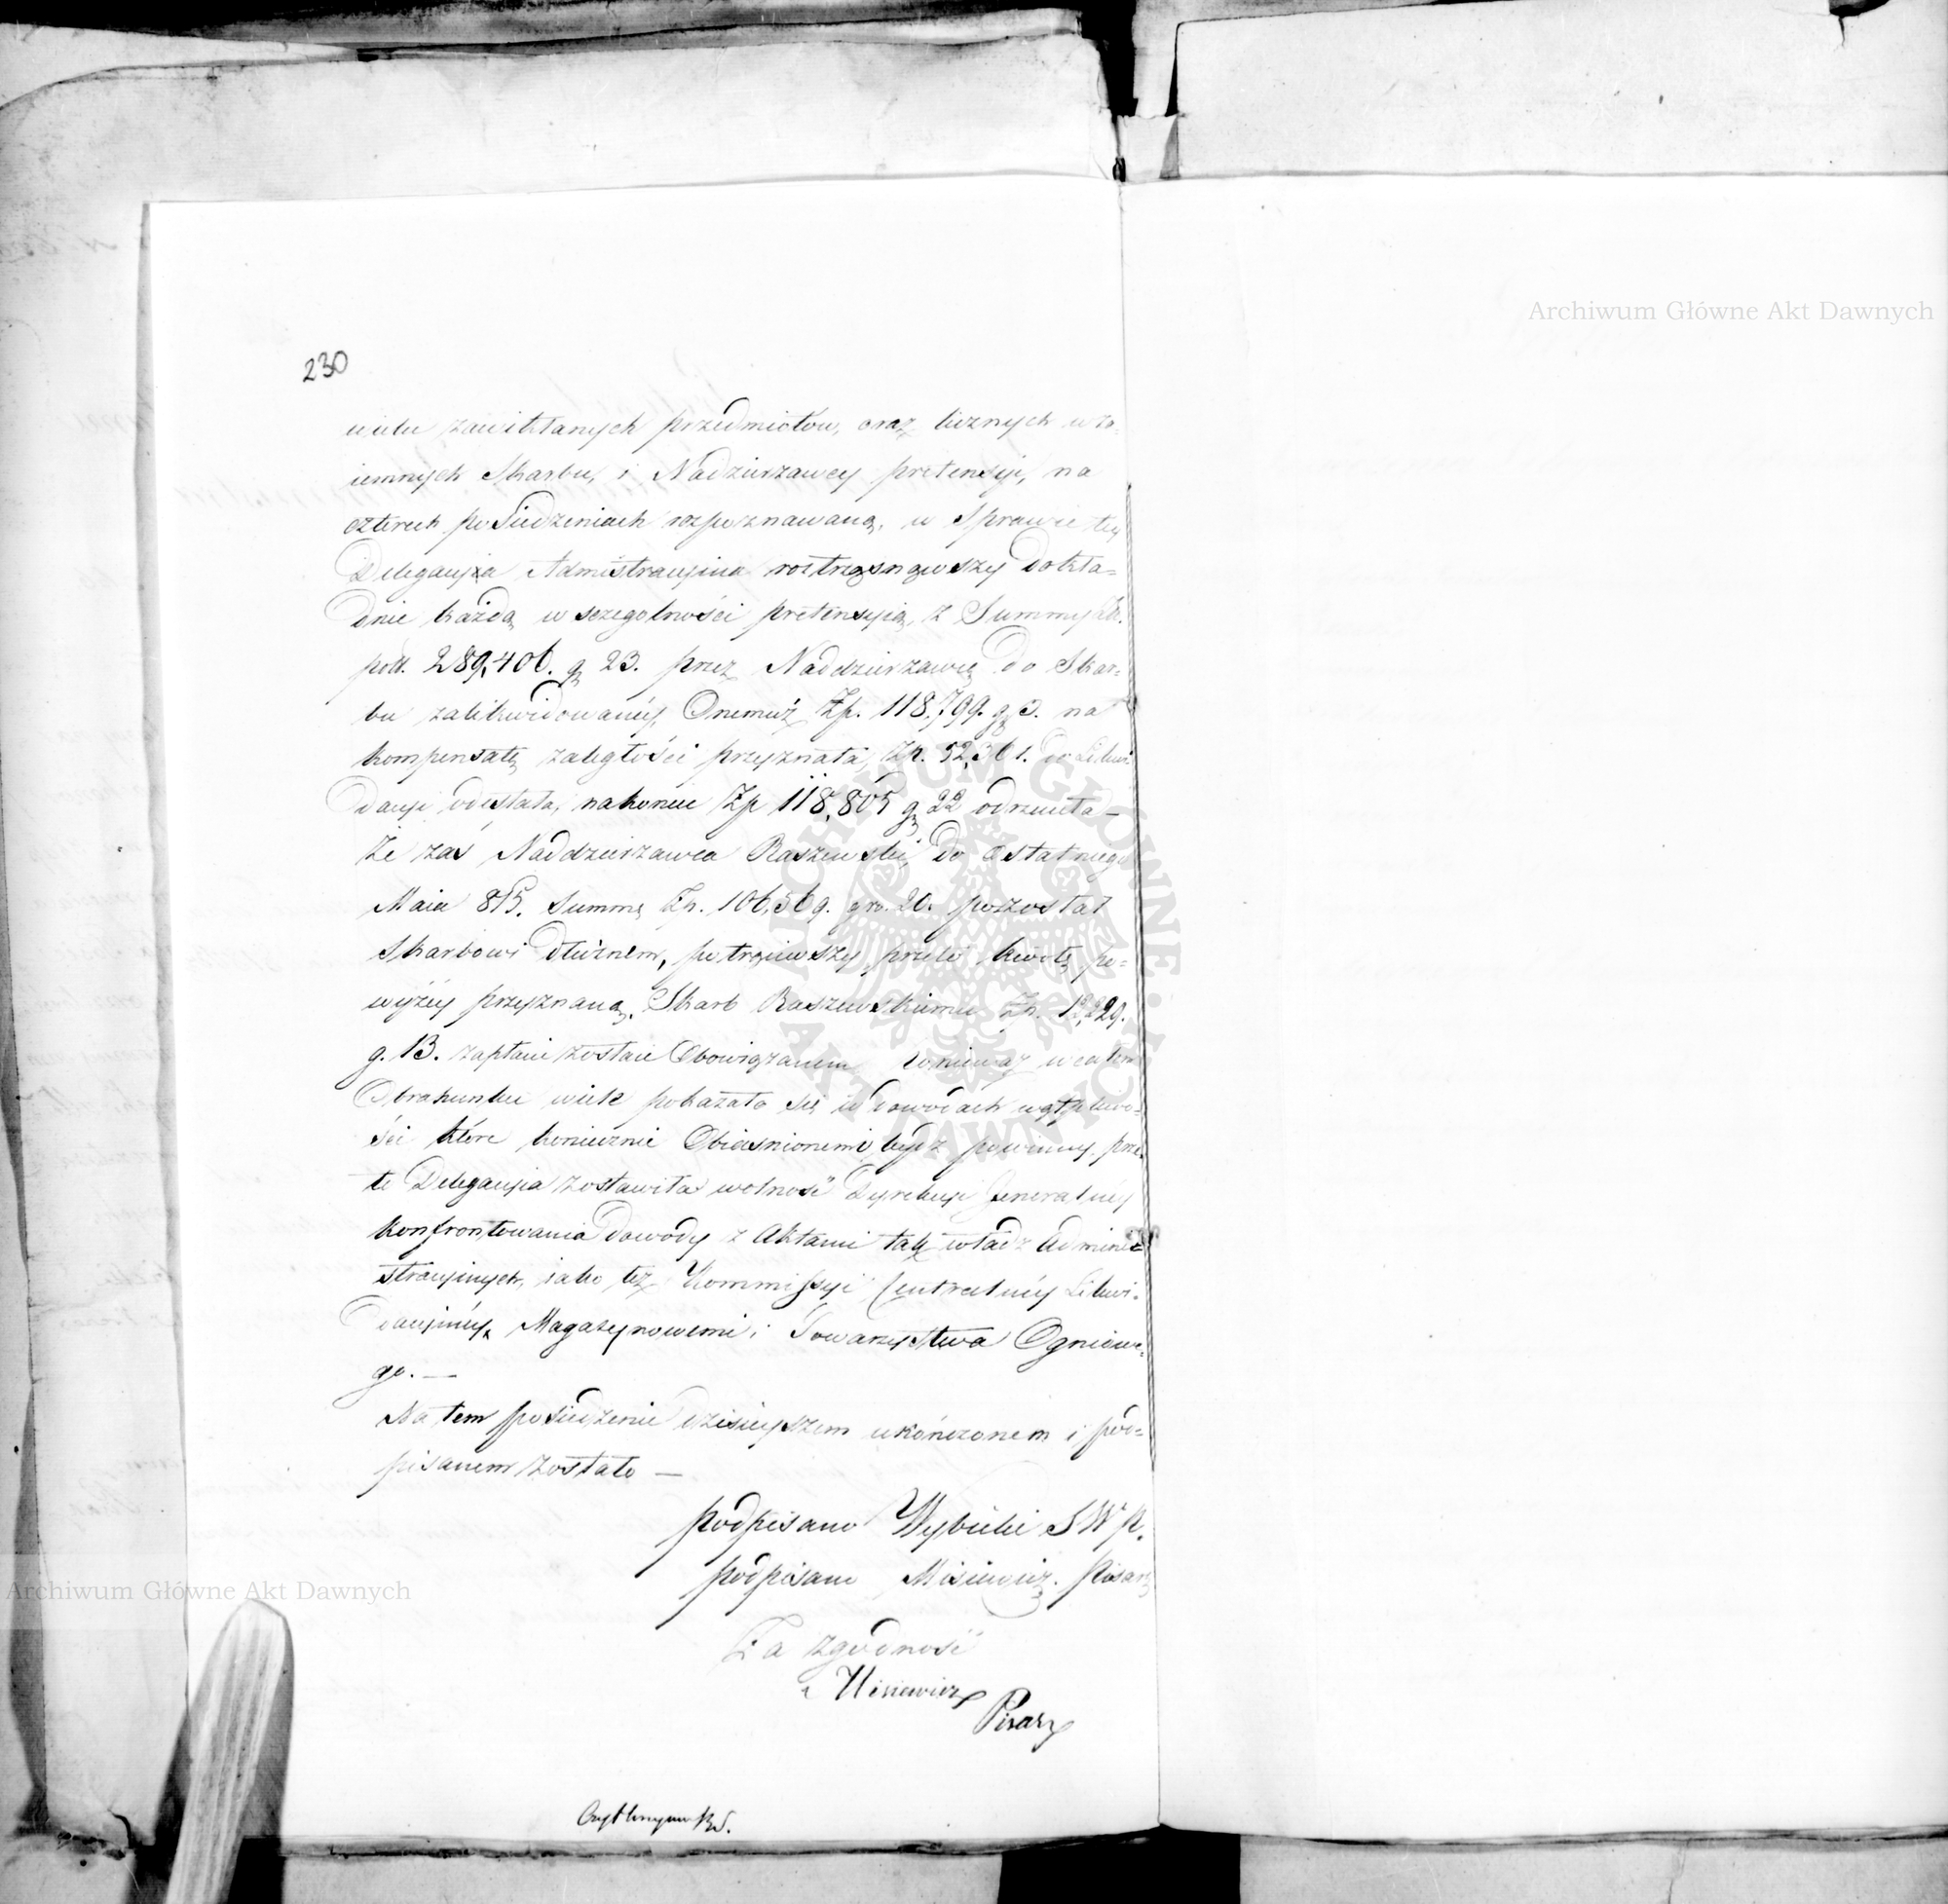 230
wielu zawikłanych przedmiotów, oraz licznych wza-
iemnych Skarbu, i Nadzierzawcy pretensyi, na
czterech posiedzeniach rozpoznawaną, w Sprawie tey
Delegacyia Admistracyina roztrząsnąwszy dokła=
dnie każdą w sczegolności pretensyią, z Summy Zł.
pol. 289,406. g 23. przez Naddzierzawcę do Skar-
bu zalikwidowanéy, Onemuż Zp. 118,799. g 3. na
kompensatę zaległości przyznała, Zp. 52,361. do Likwi
dacyi odesłała, nakoniec Zp 118,805 g 22 odrzuciła –
Że zaś Naddzierzawca Raszewski, do ostatniego
Maia 815. Summę Zp. 106,569. gro. 20. pozostał
Skarbowi dłużnem, potrąciwszy przeto kwotę po=
wyżéy przyznaną, Skarb Raszewskiemu Zp. 12,229.
g. 13. zapłacić zostaie Obowiązanem Ponieważ w całem
Obrahunku wiele pokazało się w dowodach wątpliwo-
ści które koniecznie Obiasnionemi bydz powinny, prze
to Delegacyia zostawiła wolność Dyrekcyi Generalnéy
konfrontowania dowody z Aktami tak władz Admini=
stracyinych, iako też Kommissyi Centralnéy Likwi-
dacyinéy, Magazynowemi i Towarzystwa Ogniowe-
go. —
Na tem posiedzenie dzisieyszem ukończonem i pod=
pisanem zostało —
podpisano Wybicki SWP.
podpisano Misiewicz. Pisarz
Za zgodność
Misiewicz
Pisarz
Archiwum Główne Akt Dawnych
Archiwum Główne Akt Dawnych
ARCHIWUM GŁÓWNE AKT DAWNYCH